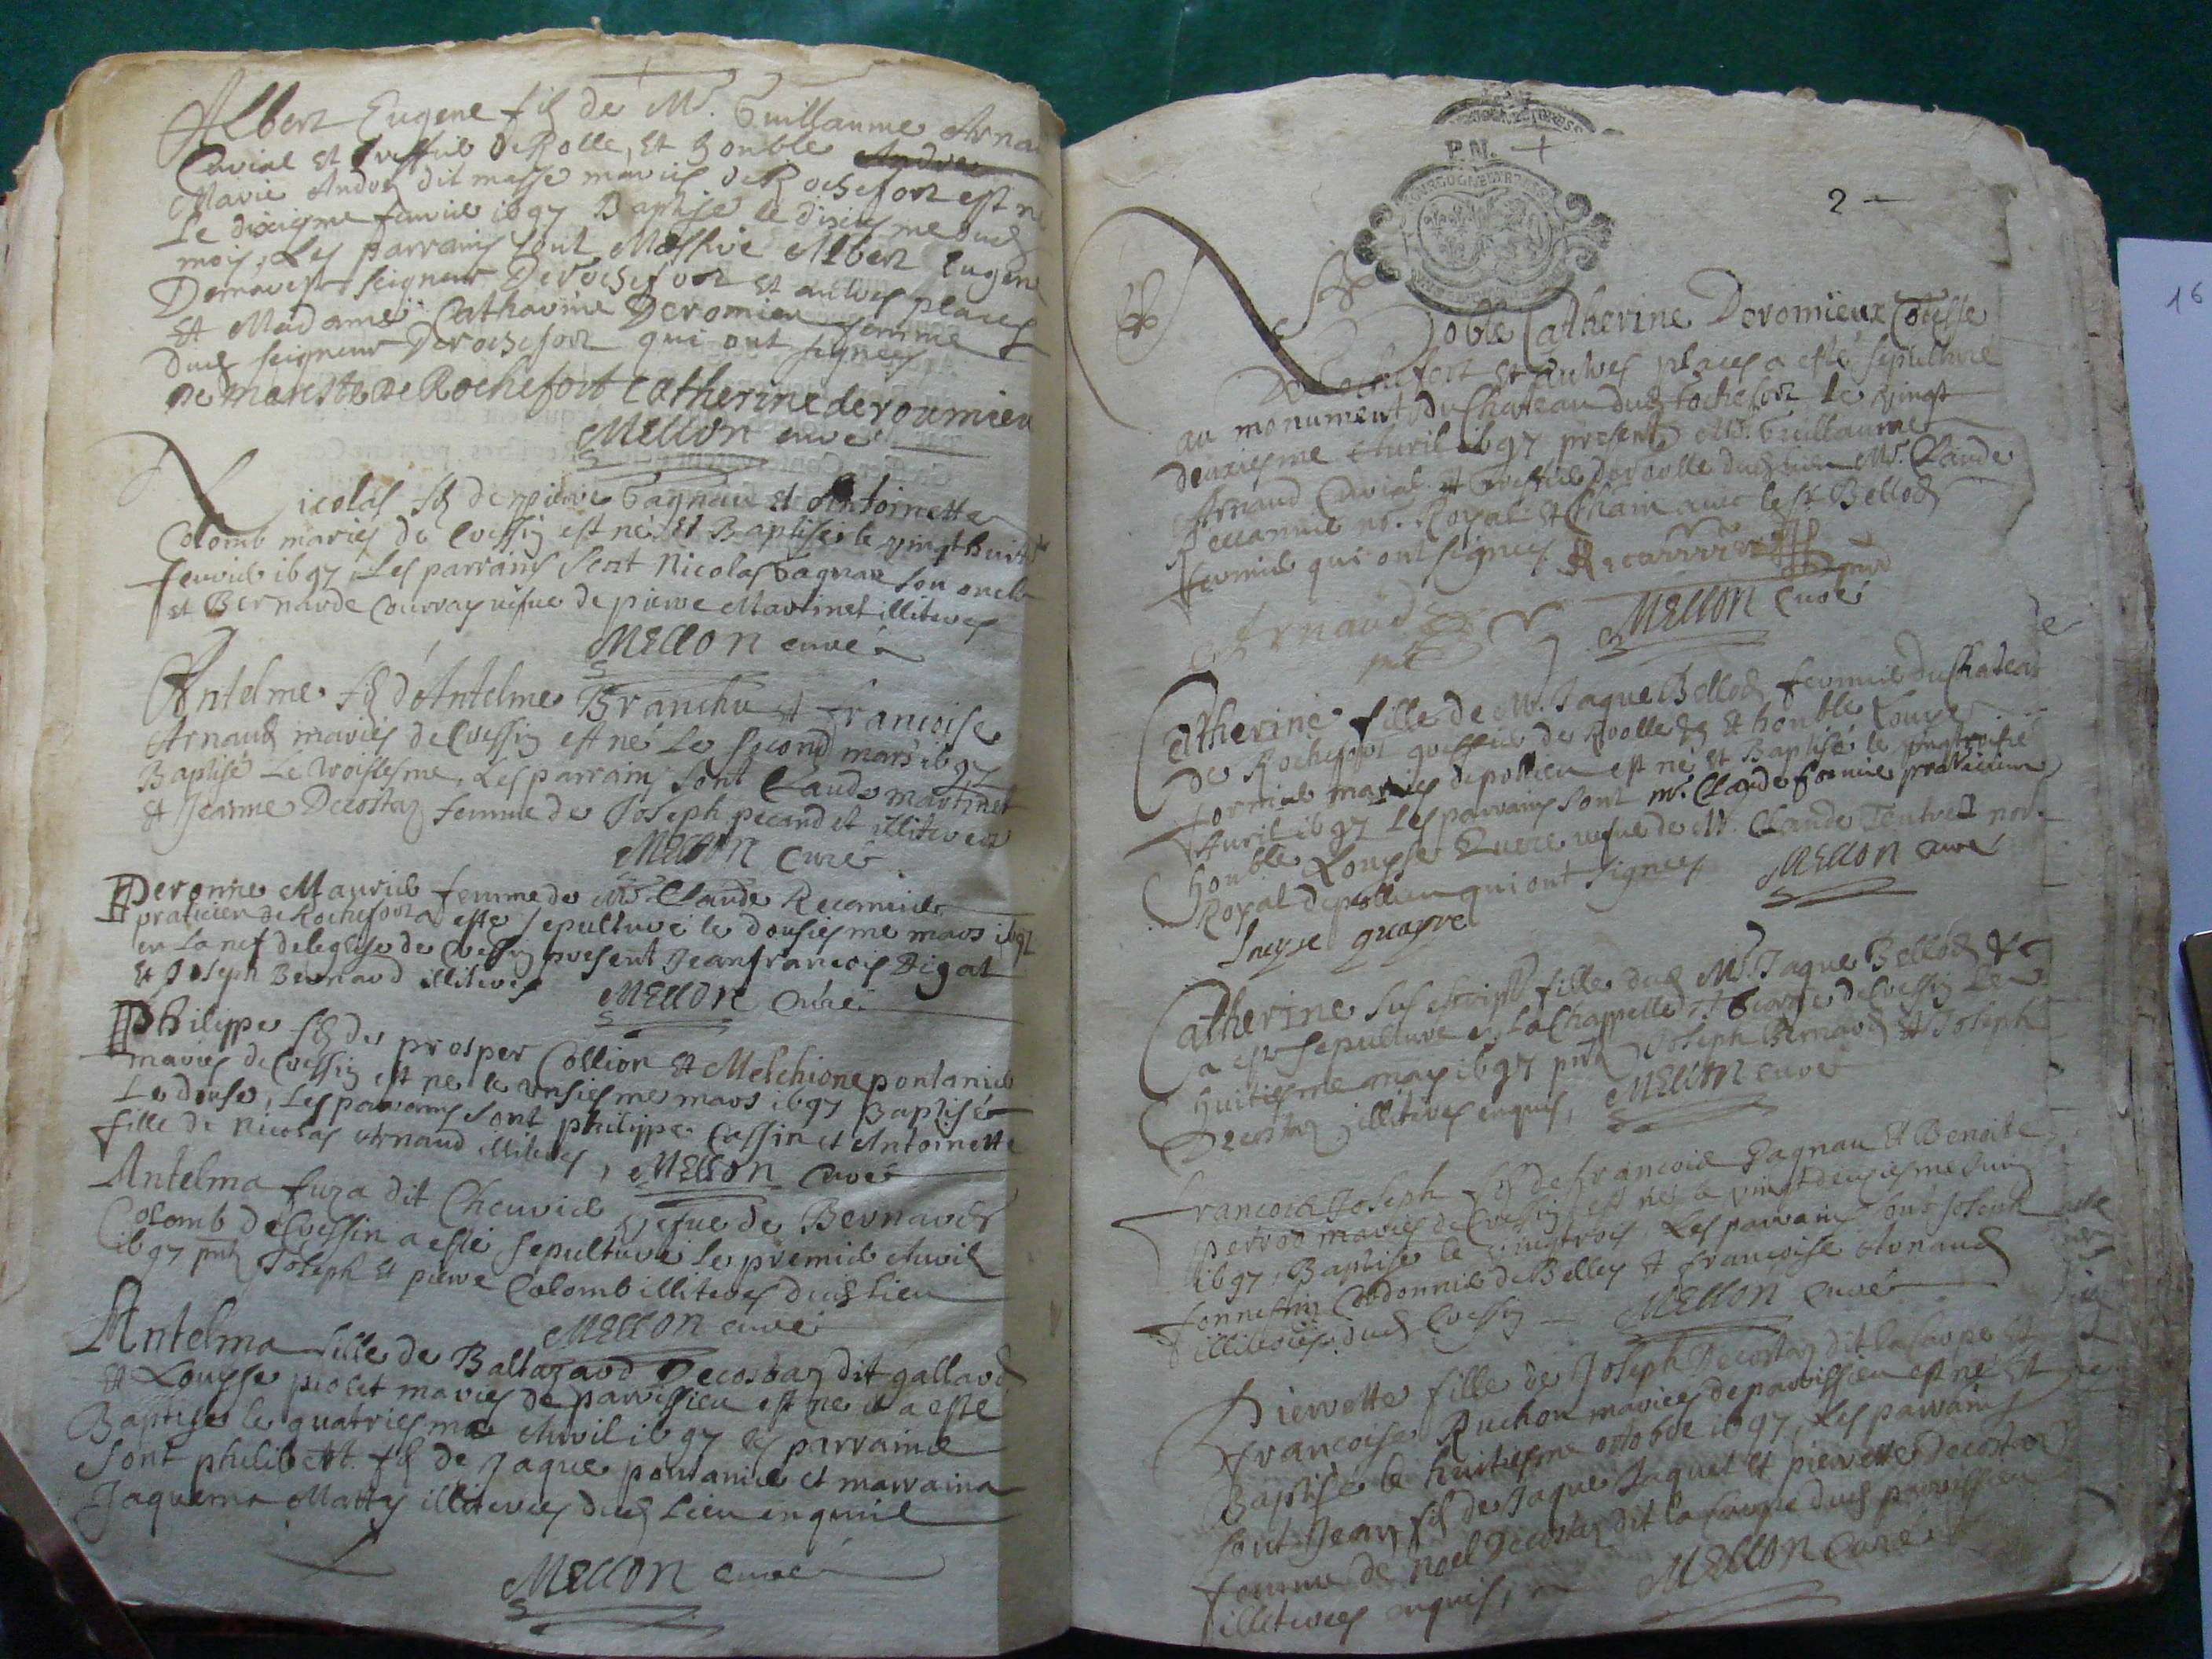 Albert Eugene fils de Mr. Guillaume Arna
Curial et Greffier De Rolle, et honble
Marie dit masse mariés de Rochefort est n
Le dixiesme feuvrier 1697 Baptisé le dud
mois, Les parrains sont Messire Albert Eugene
Demareste seigneur De rochefort et autres places
et Madame Catharine Deromieu femme
dud seigneur De rochefort qui ont signés
De Mareste De Rochefort Catherine de roumieu
MELLON curé
Nicolas fils de pierre Gagnau et Antoinette
Colomb mariés de Cressin est né et Baptisé le vingthuit
feuvrier 1697, Les parrains sont Nicolas Gagnau son oncle
et Bernarde vefue de pierre Martinet illiteres
MELLON curé
Antelme fils d'Antelme Branchu et francoise
Arnaud mariés de Cressin est né Le second mars 1697
Baptisé Le troisiesme, Les parrains sont Claude martinet
et Jeanne Decostaz femme de Joseph pecandet illiteres
MELLON Curé
Peronne Maurier femme de Mr. Claude Recamier
praticien de Rochefort a esté sepulturé le dousiesme mars 1697
en La nef de leglise de Cressin present Jean francois Rigat
et Joseph Bernard illiteres MELLON Curé
Philippe fils de prosper Collion et Melchione pontanier
mariés de Cressin est né le unsiesme mars 1697 Baptisé
Le douse, Les parrains sont philippe Cassin et Antoinette
fille de Nicolas Arnaud illiteres, MELLON Curé
Antelma dit Cheuvrier vefue de Bernard
Colomb de Cressin a esté sepulturé Le premier Auvril
1697 pnts Joseph et pierre Colomb illiteres dud Lieu
MELLON curé
Antelma fille de Baltazard Decostaz dit gallard
et Louyse piolet mariés de parvissieu est né et a esté
Baptisé le quatriesme Auvril 1697 les parraine
sont philibert fils de Jaque pontanier et marraina
Jaquema Mattey illiteres dud Lieu enquis
MELLON curé
P.M.
2
16
Noble Catherine Deromieux Cotesse
De Rochefort et autres places a esté sepulturé
au monument du Chateau dud Rochefort le vingt
deuxiesme Auril 1697 present Mr. Guillaume
Arnaud Curial et Greffier de rolle dud lieu Mr. Claude
Reccamier no. Royal et Chatn avec le sr. Bellod
fermier qui ont signés Recamier
Arnaud MELLON Curé
pnt
Catherine fille de Mr. Jaque Bellod fermier du Chateau
de Rochefort greffier de Rolle et honble Louyse
fornier mariés de pollieu est né et Baptisé le
Auril 1697 Les parrains sont mr. Claude fornier praticien
honble Louyse vefue de Mr. Claude not.
Royal de pollieu qui ont signés MELLON curé
Catherine sus escript fille dud Mr. Jaque Bellod &c
a esté sepulturé en La Chappelle St. George de Cressin Le
huitiesme may 1697 pnts Joseph Bernard et Joseph
Decostaz illiteres enquis, MELLON curé
francois Joseph fils de francois Gagnau et Benoite
perrod mariés de Cressin est né le vingtdeusiesme Juin
1697, Baptisé le vingtrois, Les parrains sont Joseph
Cordonnier de Belley et francoise Arnaud
illiteres dud Cressin MELLON Curé
Pierrette fille de Joseph Decostaz dit et
francoise Ruchon mariés de parvissieu est né et
Baptisé le huitiesme octobre 1697, Les parrains
sont Jean fils de Jaque Jaquet et pierrette Decostaz
femme de Noel Decostaz dit dud parvissieu
illiteres enquis, MELLON Curé